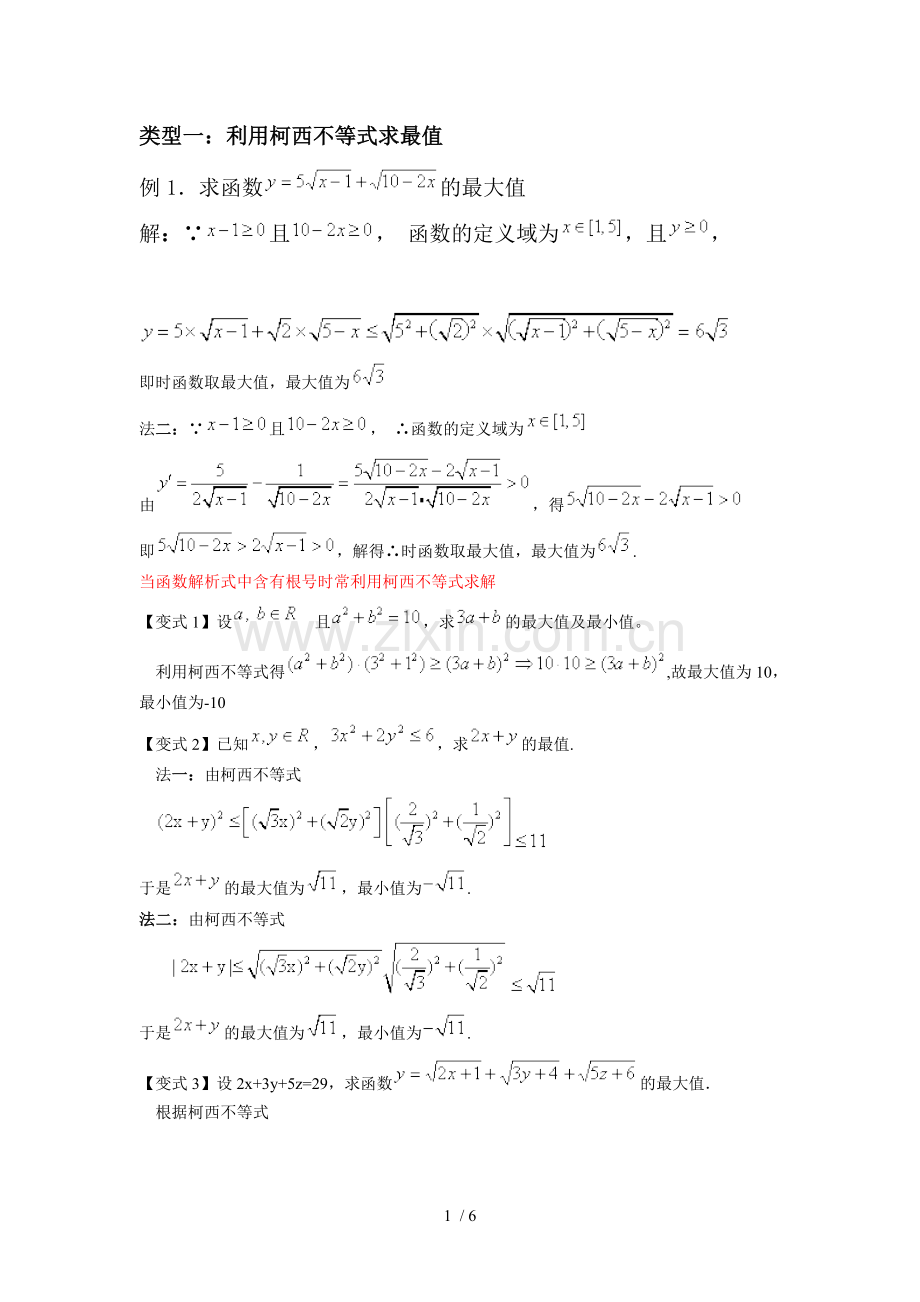 类型一：利用柯西不等式求最值
例 1．求函数 y=5√(x−1)+√(10−2x) 的最大值
解：∵ x−1≥0 且 10−2x≥0， 函数的定义域为 x∈[1,5]，且 y≥0，
y=5×√(x−1)+√2×√(5−x)≤√(5²+(√2)²)×√((√(x−1))²+(√(5−x))²)=6√3
即时函数取最大值，最大值为 6√3
法二：∵ x−1≥0 且 10−2x≥0， ∴函数的定义域为 x∈[1,5]
由 y′=5/(2√(x−1))−1/√(10−2x)=(5√(10−2x)−2√(x−1))/(2√(x−1)•√(10−2x))>0，得 5√(10−2x)−2√(x−1)>0
即 5√(10−2x)>2√(x−1)>0，解得∴时函数取最大值，最大值为 6√3.
当函数解析式中含有根号时常利用柯西不等式求解
【变式 1】设 a, b∈R 且 a²+b²=10，求 3a+b 的最大值及最小值。
利用柯西不等式得 (a²+b²)·(3²+1²)≥(3a+b)²⇒10·10≥(3a+b)²,故最大值为 10，
最小值为-10
【变式 2】已知 x,y∈R，3x²+2y²≤6，求 2x+y 的最值.
法一：由柯西不等式
(2x+y)²≤[(√3x)²+(√2y)²][(2/√3)²+(1/√2)²]≤11
于是 2x+y 的最大值为 √11，最小值为 −√11.
法二：由柯西不等式
|2x+y|≤√((√3x)²+(√2y)²)√((2/√3)²+(1/√2)²)≤√11
于是 2x+y 的最大值为 √11，最小值为 −√11.
【变式 3】设 2x+3y+5z=29，求函数 y=√(2x+1)+√(3y+4)+√(5z+6) 的最大值．
根据柯西不等式
www.zixin.com.cn
1 / 6